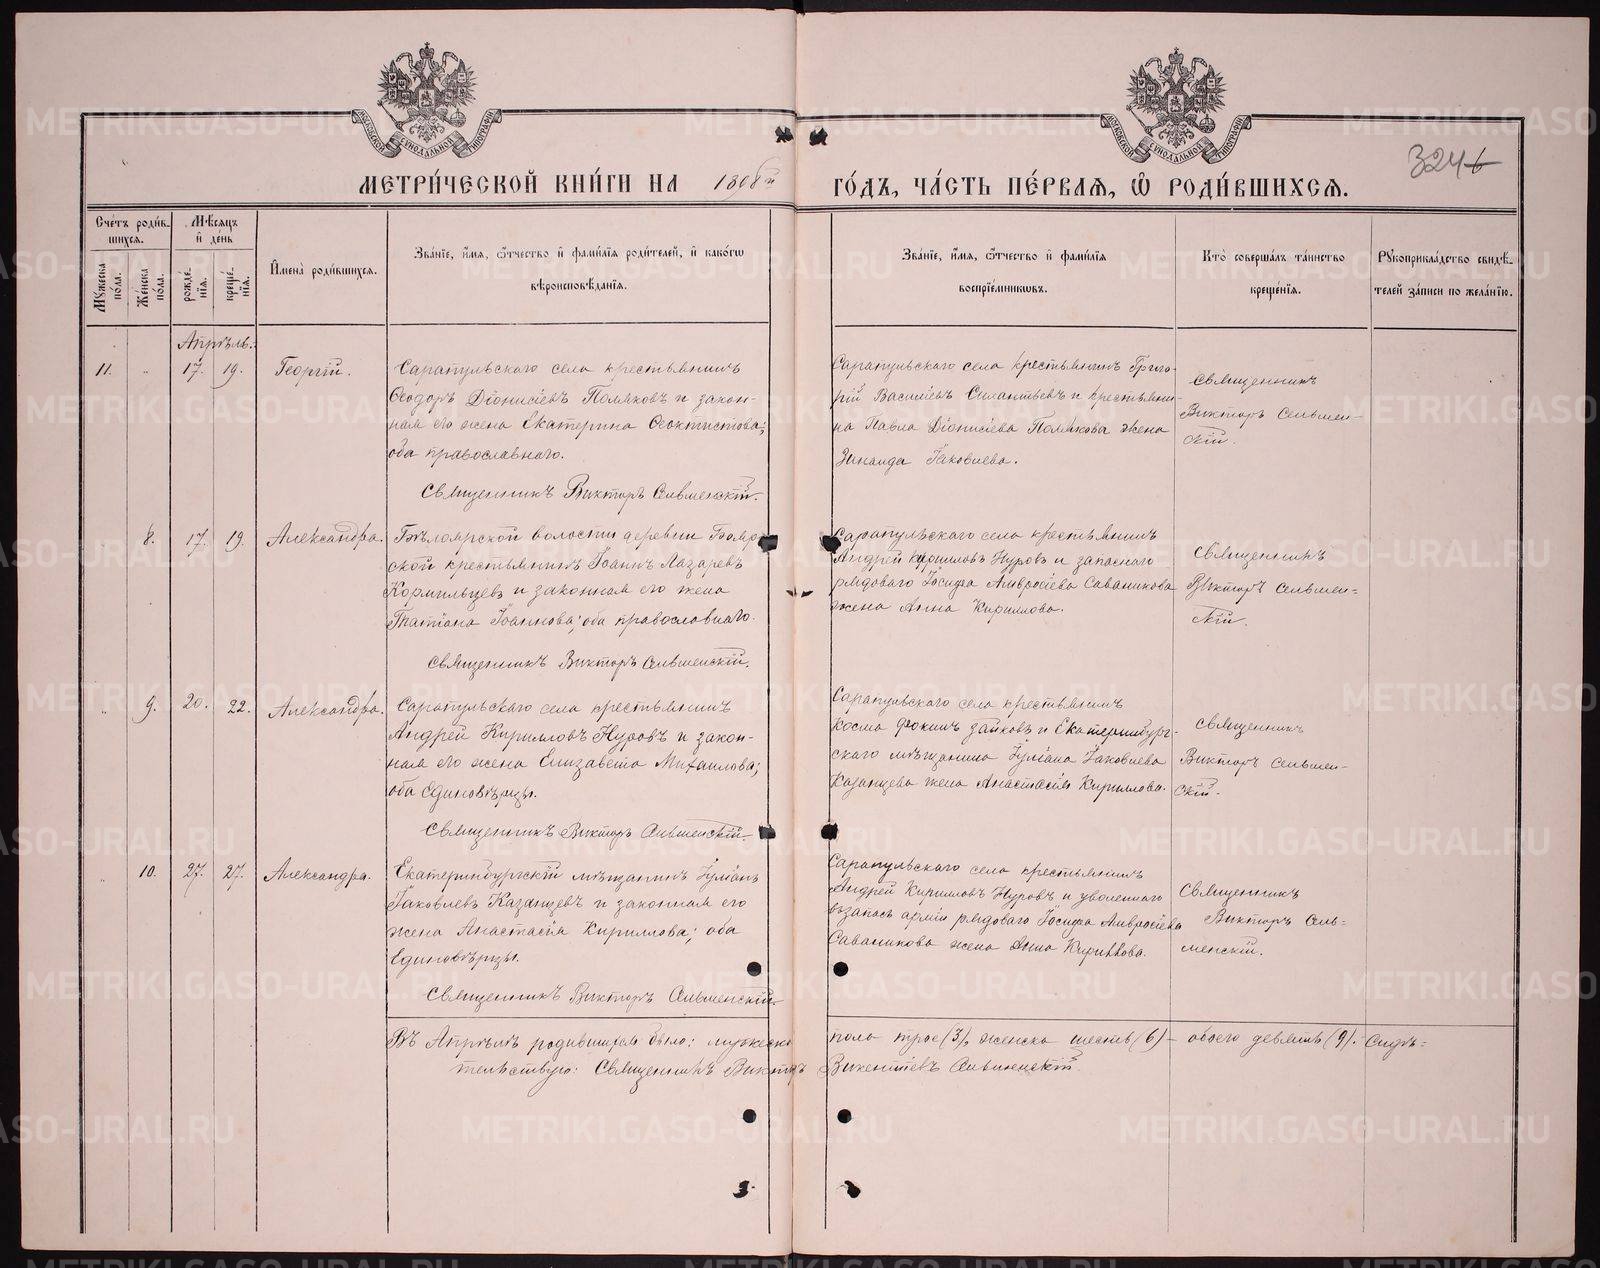 МОСКОВСКОЙ СѴНОДАЛЬНОЙ ТИПОГРАФІИ
МОСКОВСКОЙ СѴНОДАЛЬНОЙ ТИПОГРАФІИ
324
МЕТРИ́ЧЕСКОЙ КНИ́ГИ НА
ГО́ДЪ, ЧА́СТЬ ПЕ́РВАѦ, Ѡ҆ РОДИ́ВШИХСѦ.
Сче́тъ роди́в-
шихсѧ.
Мѣ́сѧцъ
и҆ де́нь
Мꙋ́жеска
по́ла.
Же́нска
по́ла.
рожде́-
нїѧ.
креще́-
нїѧ.
И҆мена̀ роди́вшихсѧ.
Зва́нїе, и҆́мѧ, ѻ҆́тчество и҆ фами́лїѧ роди́телей, и҆ како́гѡ
вѣроисповѣ́данїѧ.
Зва́нїе, и҆́мѧ, ѻ҆́тчество и҆ фами́лїѧ
воспрїе́мникѡвъ.
Кто̀ соверша́лъ та́инство
креще́нїѧ.
Рꙋкоприкла́дство свидѣ́-
телей за́писи по жела́нїю.
Апрѣль.
11. " 17. 19. Георгій.
Сарапульскаго села крестьянинъ
Ѳеодоръ Діонисіевъ Поляковъ и закон-
ная его жена Екатерина Ѳеоктистова;
оба православнаго.
Священникъ Викторъ Сельменскій.
Сарапульскаго села крестьянинъ Григо-
рій Васильевъ Силантьевъ и крестьяни-
на Павла Діонисіева Полякова жена
Зинаида Іаковлева.
Священникъ
Викторъ Сельмен-
скій.
" 8. 17. 19. Александра.
Бѣлоярской волости деревни Бояр-
ской крестьянинъ Іоаннъ Лазаревъ
Кормильцевъ и законная его жена
Татіана Іоаннова; оба православнаго.
Священникъ Викторъ Сельменскій.
Сарапульскаго села крестьянинъ
Андрей Кирилловъ Нуровъ и запаснаго
рядоваго Іосифа Амвросіева Саванинова
жена Анна Кириллова.
Священникъ
Викторъ Сельмен-
скій.
" 9. 20. 22. Александра.
Сарапульскаго села крестьянинъ
Андрей Кирилловъ Нуровъ и закон-
ная его жена Елизавета Михаилова;
оба единовѣрцы.
Священникъ Викторъ Сельменскій.
Сарапульскаго села крестьянинъ
Косма Фокинъ Зайковъ и Екатеринбург-
скаго мѣщанина Іуліана Іаковлева
Казанцева жена Анастасія Кириллова.
Священникъ
Викторъ Сельмен-
скій.
" 10. 27. 27. Александра.
Екатеринбургскій мѣщанинъ Іуліанъ
Іаковлевъ Казанцевъ и законная его
жена Анастасія Кириллова; оба
единовѣрцы.
Священникъ Викторъ Сельменскій
Сарапульскаго села крестьянинъ
Андрей Кирилловъ Нуровъ и уволеннаго
въ запасъ арміи рядоваго Іосифа Амвросіева
Саванинова жена Анна Кириллова.
Священникъ
Викторъ Сель-
менскій.
Въ Апрѣлѣ родившихся было: мужеска пола трое (3), женска шесть (6) – обоего девять (9). Свидѣ-
тельствую: Священникъ Викторъ Викентіевъ Сельменскій.
METRIKI.GASO-URAL.RU